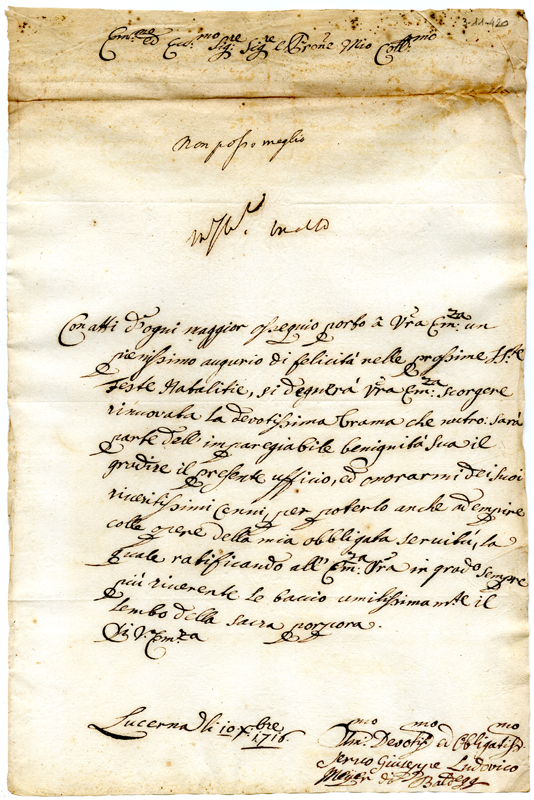 3-11-420
Em:mo ed Ecc:mo Sig:re Sig:re e Prone Mio Coll:mo
Non posso meglio
Con atti d'ogni maggior ossequio porto à Vra Em:za un
pienissimo augurio di felicità nelle prossime S:te
feste Natalitie, si degnerà Vra Em:za scorgere
rinnovata la devotissima brama che nutro: sarà
parte dell'impareggiabile benignità sua il
gradire il presente ufficio, ed onorarmi dei suoi
riveritissimi cenni, per poterlo anche adempire
colle opere della mia obbligata servitù, la
quale ratificando all'Em:za Vra in grado sempre
più riverente le baccio umilissimam:te il
lembo della sacra porpora.
Di V:ra Em:za
Lucerna li 10 Xbre 1716.
Um:mo Devotis:mo ed Obligatis:mo
Servo Giuseppe Ludovico
Meyer di Baldegg